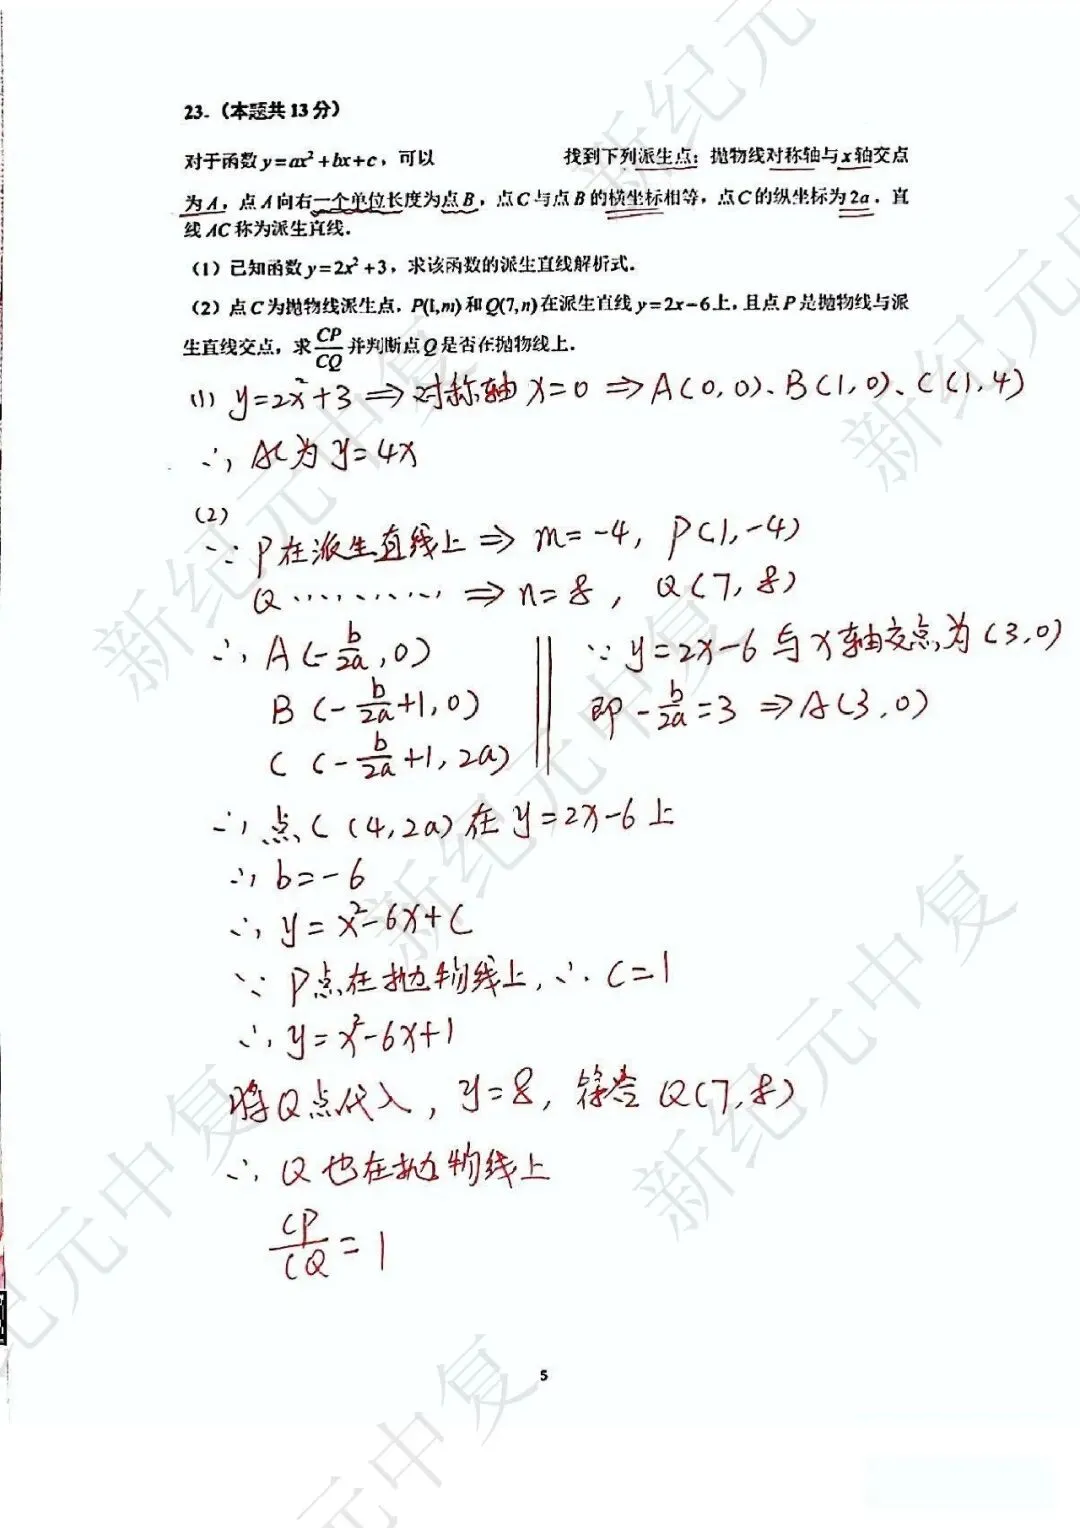 23.（本题共13分）
对于函数y=ax²+bx+c，可以 找到下列派生点：抛物线对称轴与x轴交点
为A，点A向右一个单位长度为点B，点C与点B的横坐标相等，点C的纵坐标为2a．直
线AC称为派生直线．
（1）已知函数y=2x²+3，求该函数的派生直线解析式．
（2）点C为抛物线派生点，P(1,m)和Q(7,n)在派生直线y=2x-6上，且点P是抛物线与派
生直线交点，求CP/CQ并判断点Q是否在抛物线上．
(1) y=2x²+3 ⇒ 对称轴 x=0 ⇒ A(0,0)、B(1,0)、C(1,4)
∴ AC为 y=4x
(2)
∵ P在派生直线上 ⇒ m=-4, P(1,-4)
Q ………… ⇒ n=8, Q(7,8)
∴ A(-b/2a,0)
B(-b/2a+1,0)
C(-b/2a+1,2a)
∵ y=2x-6与x轴交点为(3,0)
即 -b/2a=3 ⇒ A(3,0)
∴ 点C(4,2a)在y=2x-6上
∴ b=-6
∴ y=x²-6x+C
∵ P点在抛物线上, ∴ C=1
∴ y=x²-6x+1
将Q点代入, y=8, 符合 Q(7,8)
∴ Q也在抛物线上
CP/CQ=1
5
新纪元中复
新纪元中复
新纪元中复
新纪元中复
新纪元中复